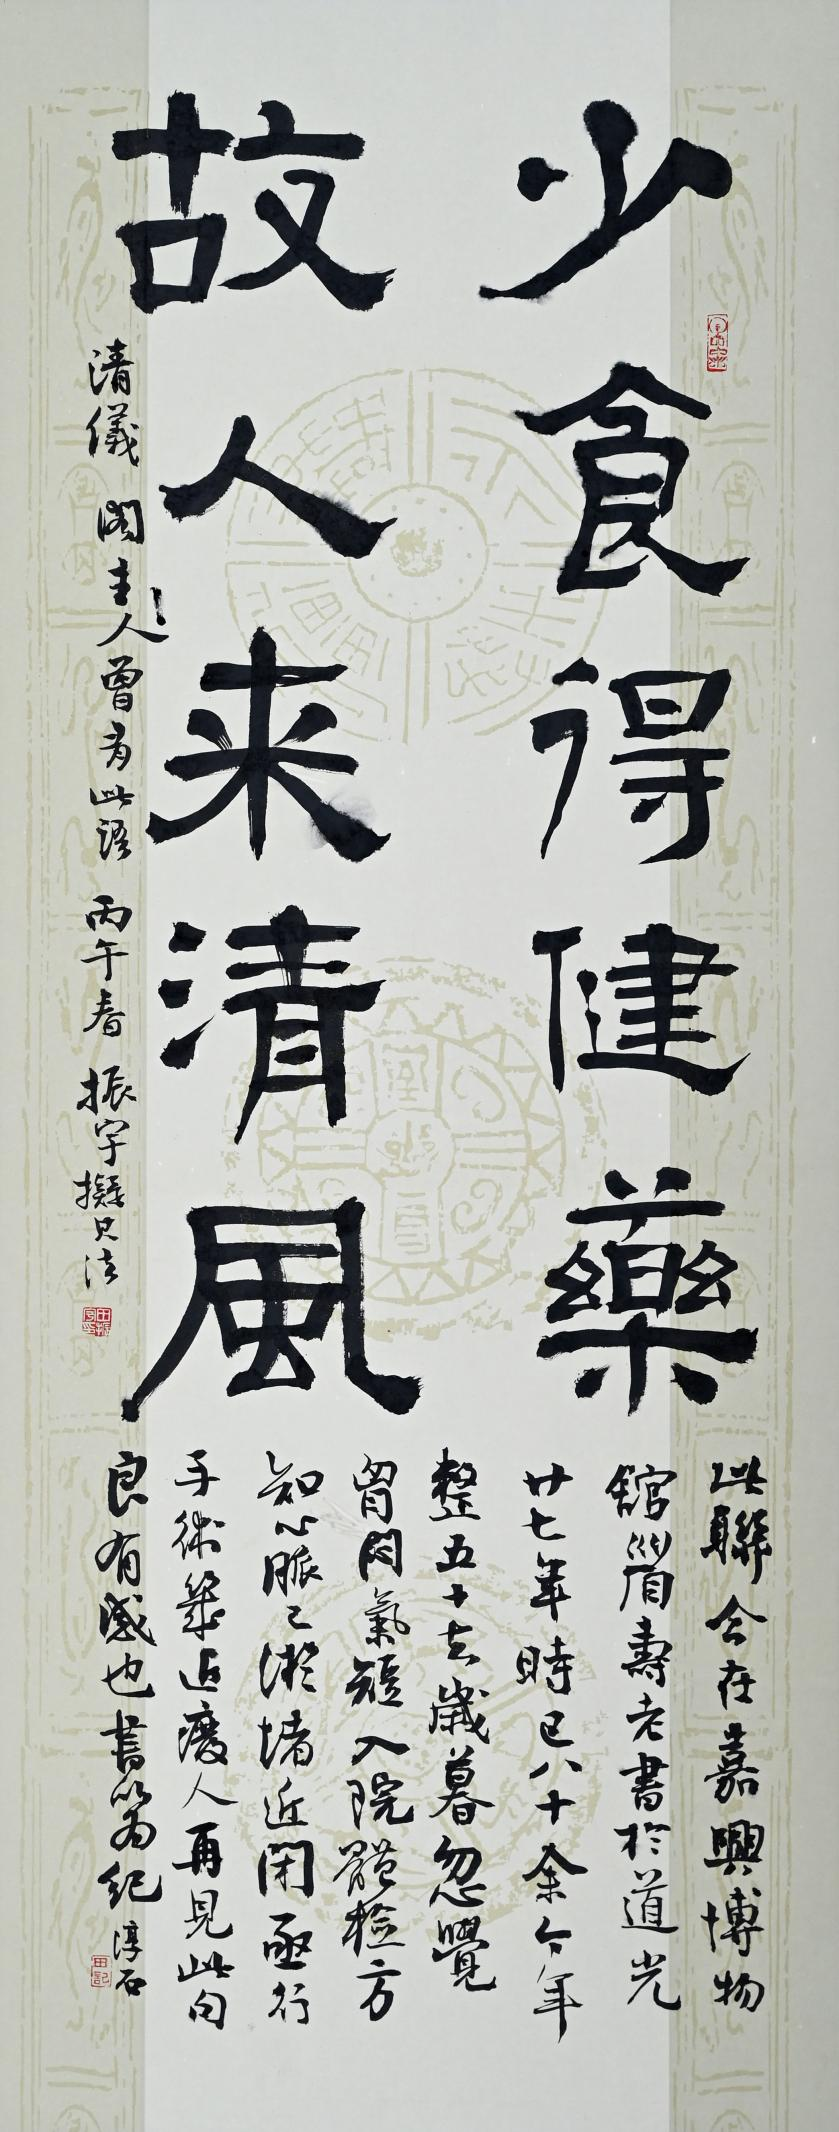 少食得健藥
故人来清風
清儀閣主人曾有此語 丙午春 振宇擬其法
此聯今在嘉興博物
館眉壽老書於道光
廿七年時已八十余今年
整五十去歲暮忽覺
胷悶氣短入院體檢方
知心脈已瀕堵近閉亟行
手術幾近廢人再見此句
良有感也書以為紀 淳石